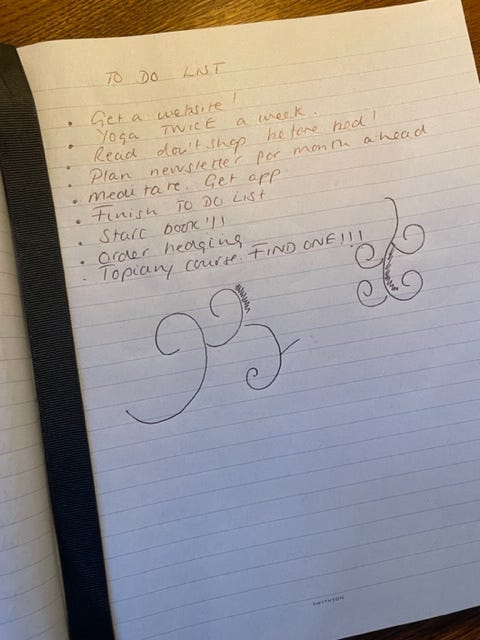 TO DO LIST
• Get a website!
• Yoga TWICE a week.
• Read don't shop before bed!
• Plan newsletter for month ahead
• meditate. Get app
• Finish TO DO LIST
• Start book!!!
• Order hedging
- Topiary course. FIND ONE!!!
SMYTHSON